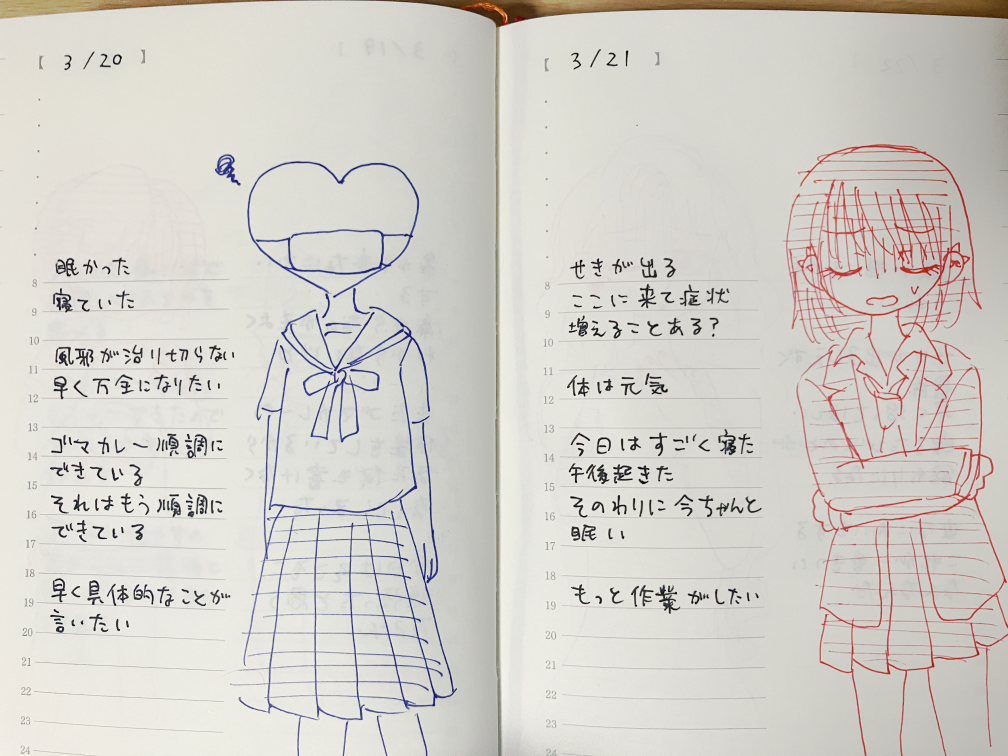 【 3/20 】
眠かった
寝ていた
風邪が治り切らない
早く万全になりたい
ゴマカレー順調に
できている
それはもう順調に
できている
早く具体的なことが
言いたい
8
9
10
11
12
13
14
15
16
17
18
19
20
21
22
23
24
【 3/21 】
せきが出る
ここに来て症状
増えることある?
体は元気
今日はすごく寝た
午後起きた
そのわりに今ちゃんと
眠い
もっと作業がしたい
8
9
10
11
12
13
14
15
16
17
18
19
20
21
22
23
24